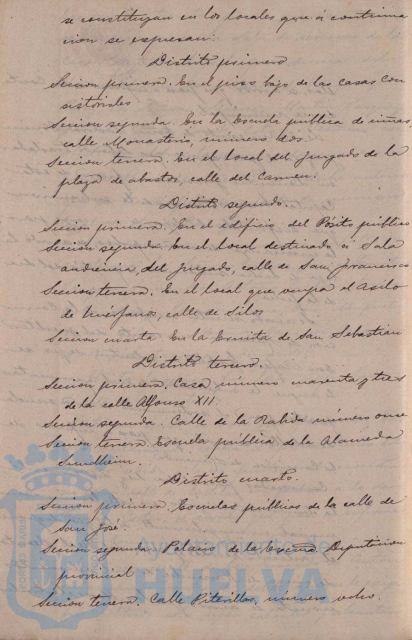 se constituyan en los locales que á continua
cion se expresan:
Distrito primero
Seccion primera. En el piso bajo de las casas con
sistoriales
Seccion segunda. En la Escuela publica de niñas,
calle Monasterio, número dos.
Seccion tercera. En el local del Juzgado de la
plaza de abastos, calle del Carmen.
Distrito segundo.
Seccion primera. En el edificio del Pósito publico
Seccion segunda. En el local destinado á Sala
audiencia, del Juzgado, calle de San Francisco
Seccion tercera. En el local que ocupa el Asilo
de Huerfanos, calle de Silos
Seccion cuarta En la Ermita de San Sebastian
Distrito tercero.
Seccion primera, Casa, número cuarenta y tres
de la calle Alfonso XII.
Seccion segunda. Calle de la Rabida número once
Seccion tercera. Escuela publica de la Alameda
Sundheim.
Distrito cuarto.
Seccion primera, Escuelas públicas de la calle de
San José.
Seccion segunda. Palacio de la Excma Diputacion
provincial
Seccion tercera. Calle Piterillas, número ocho.
ayuntamiento de
HUELVA